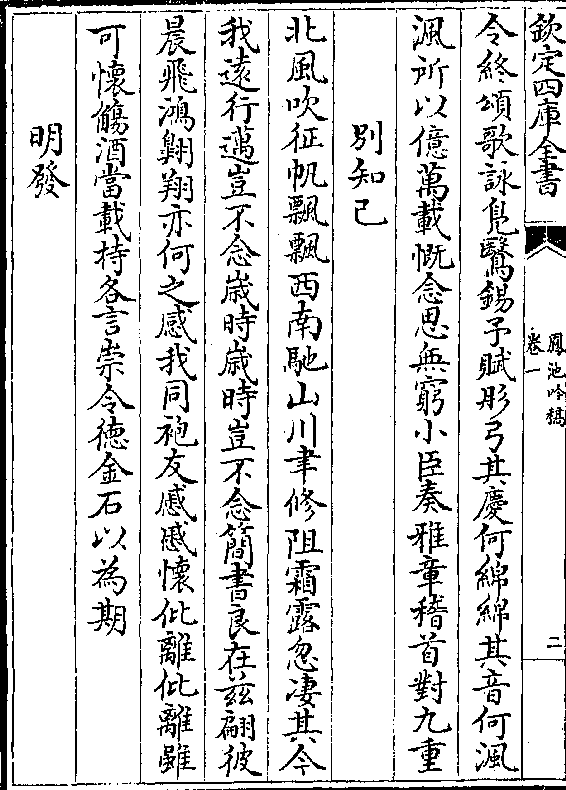 欽定四庫全書
鳳池吟稿
卷一
二
令終頌歌詠鳧鷖錫予賦彤弓其慶何綿綿其音何渢
渢所以億萬載慨念思無窮小臣奏雅章稽首對九重
別知己
北風吹征帆飄飄西南馳山川聿修阻霜露忽凄其今
我遠行邁豈不念歳時歳時豈不念簡書良在兹翩彼
晨飛鴻翺翔亦何之感我同袍友慼慼懷仳離仳離雖
可懷觴酒當載持各言崇令德金石以為期
明發